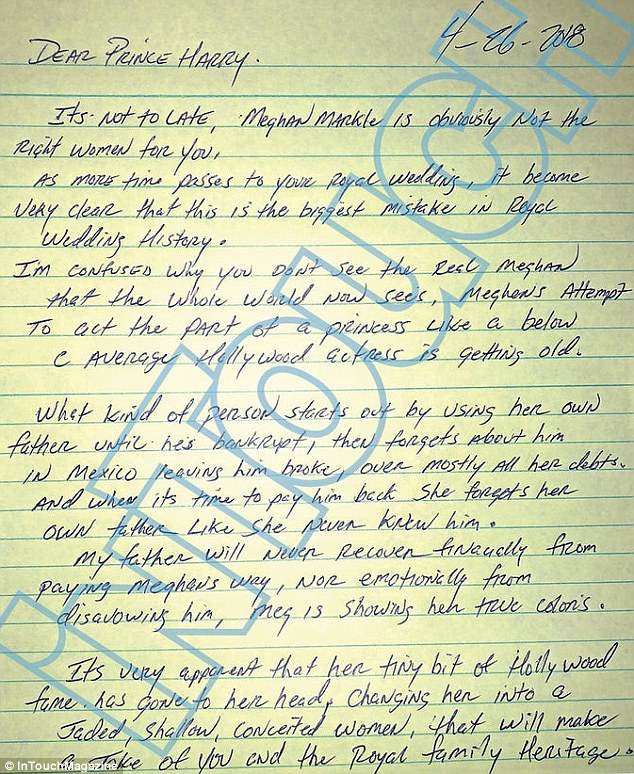 4-26-2018
DEAR PRINCE HARRY.
Its. NOT TO LATE, MegHAN MARKle is obviously Not the
Right women for you,
As more time passes to your Royal Wedding, it become
very clear that this is the biggest mistake in Royal
Wedding History.
I'm confused why you Don't see the Real MegHAN
that the whole world Now sees, Meghan's Attempt
To act the PART of a princess Like a below
C AVERAGE Hollywood actress is getting old.
What kind of person starts out by using her own
father until he's bankrupt, then forgets About him
IN Mexico leaving him broke, over mostly all her debts.
And when its time to pay him back She forgets her
OWN father Like She Never Knew him.
My father will Never Recover finacially from
paying Meghans way, NOR emotionally from
disavowing him, Meg is showing her true colors.
It's very apparent that her tiny bit of Hollywood
fame has gone to her head, Changing her into a
Jaded Shallow, conceited women, that will make
a Joke of you and the Royal family Heritage.
InTouch
© InTouchMagazine